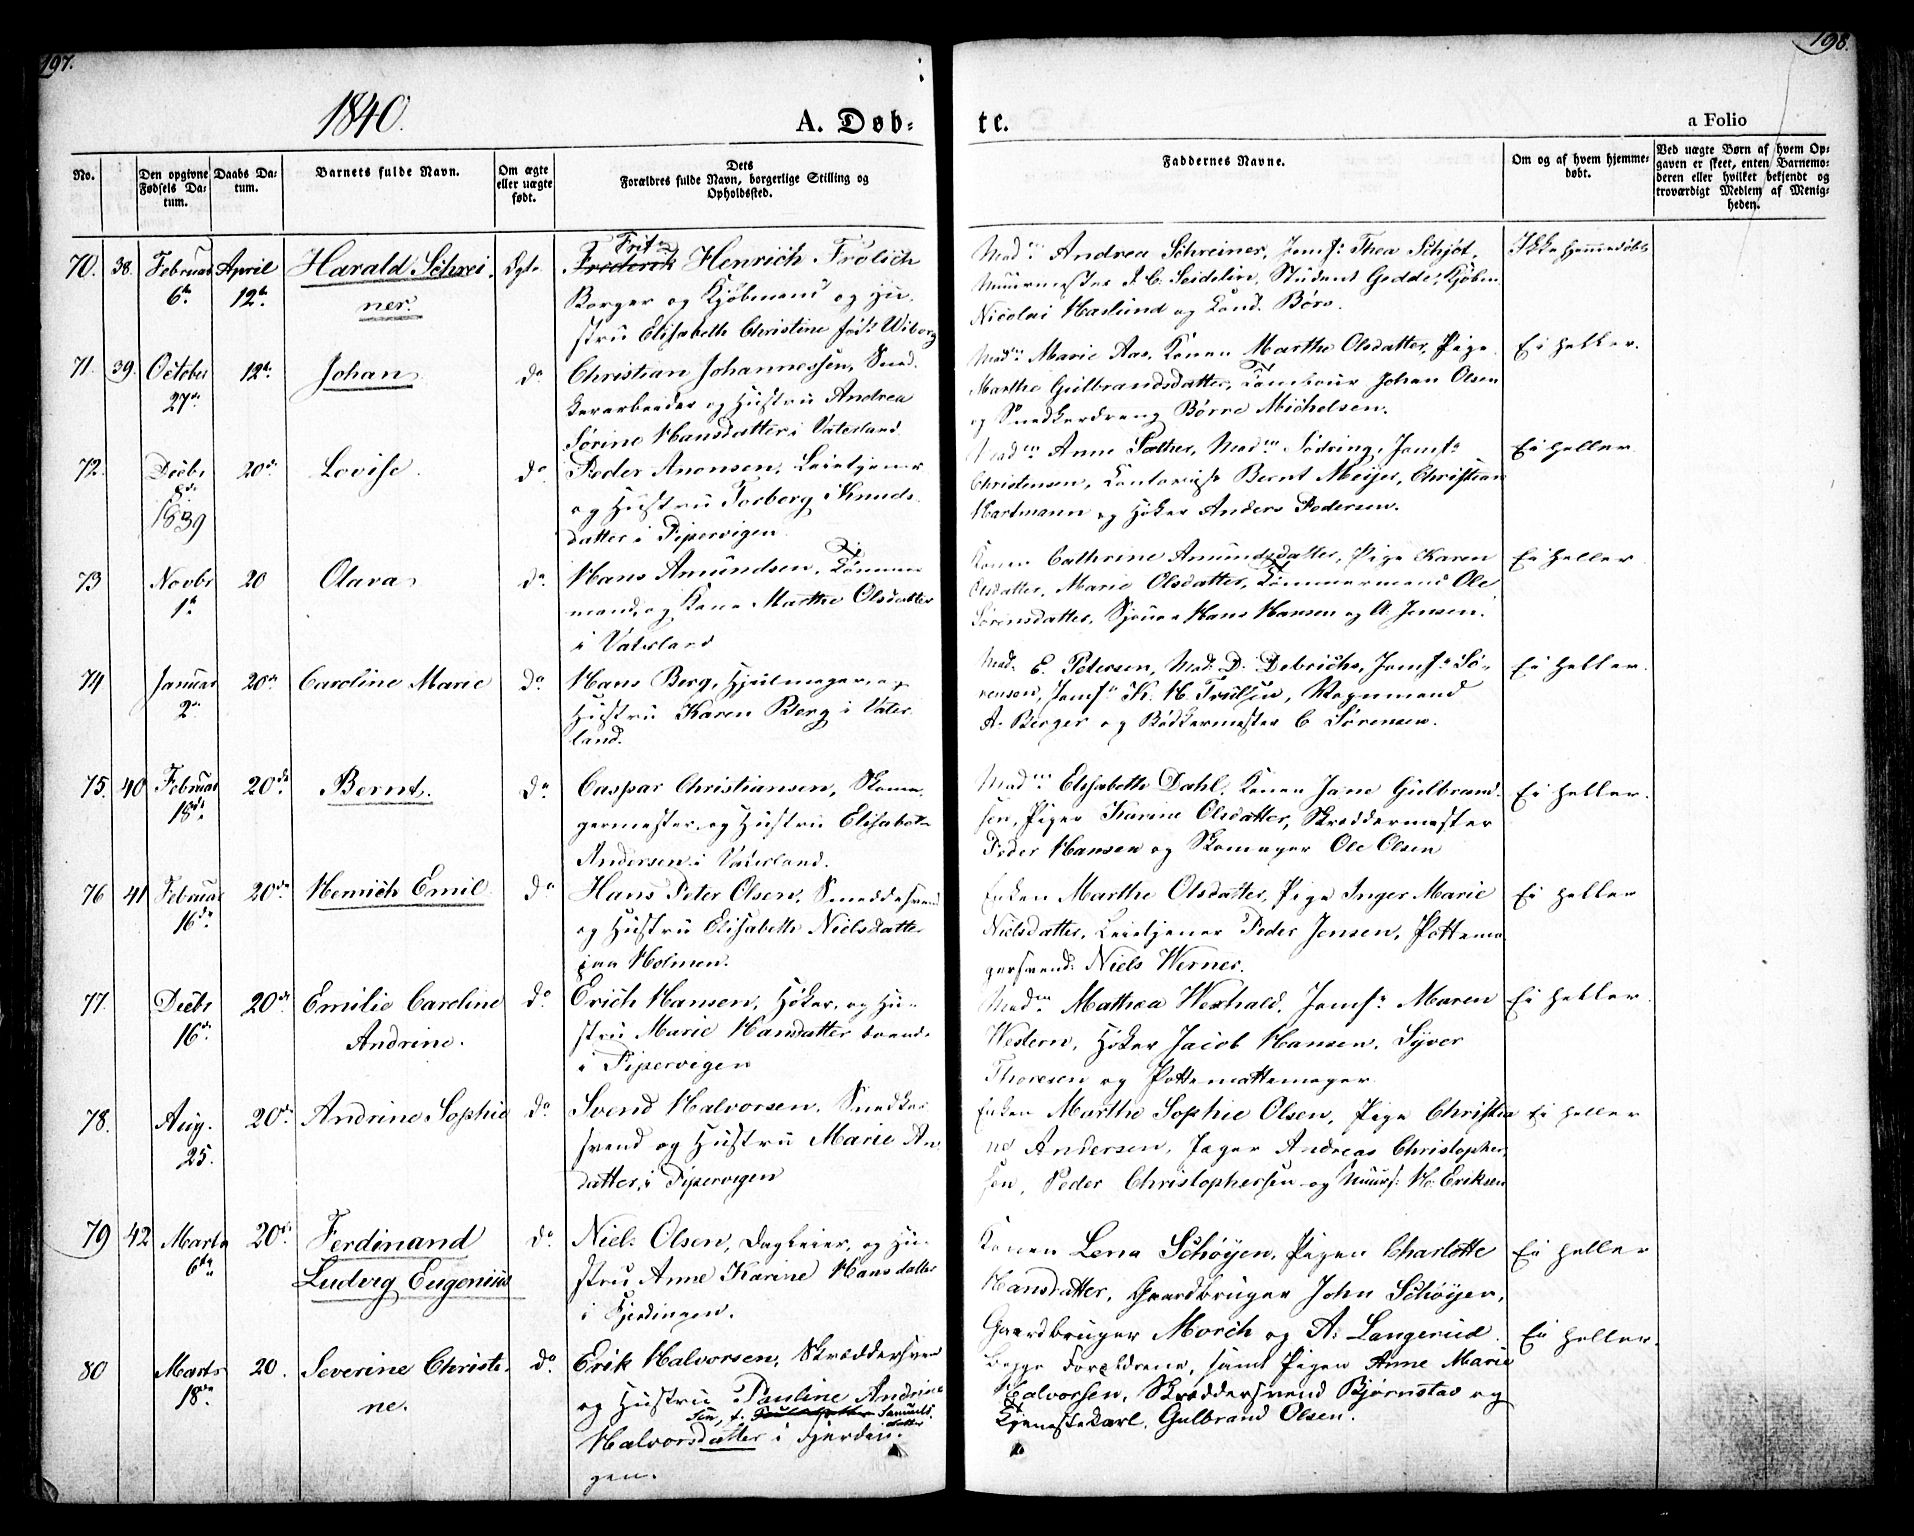 197.
198.
1840.
A. Døb-
te.
a Folio
No.
Den opgivne Fødsels Datum.
Daabs Datum.
Barnets fulde Navn.
Om ægte eller uægte født.
Dets Forældres fulde Navn, borgerlige Stilling og Opholdssted.
Faddernes Navne.
Om og af hvem hjemmedøbt.
Ved uægte Børn af hvem Opgaven er skeet, enten Barnemoderen eller hvilket bekjendt og troværdigt Medlem af Menigheden.
70. 38. Februar 6te April 12te Harald Schreiner. Ægte
Fritz
Frederik Henrich Frølich
Borger og Kjøbmand og Hu-
stru Elisabeth Christine født Wiborg
Madm Andrea Schreiner, Jomf: Thea Schjøt,
Muurmester J. C. Seidelin, Student Gedde, Kjøbm.
Nicolai Haslund og Cand. Børs.
Ikke hjemmedøbt
71. 39. October 27de 12te Johan do
Christian Johannessen, Sned-
kerarbeider og Hustru Andrea
Sørine Hansdatter i Vaterland
Madm Marie Aas, Konen Marthe Olsdatter, Pige
Marthe Gulbrandsdatter, Tambour Johan Olsen
og Snedkerdreng Børre Michelsen.
Ei heller.
72. Decbr 1839 20de Lovise do
Peder Anonsen, Leietjener
og Hustru Torborg Knuds-
datter i Pipervigen
Madm Anne Sæther, Madm Sødring, Jomf:
Christensen, Contorist Bernt Meijer, Christian
Hartmann og Høker Anders Pedersen.
Ei heller
73 Novbr 1te 20 Olava do
Hans Amundsen, Tømmer-
mand, og Kone Marthe Olsdatter
i Vaterland
Konen Cathrine Amundsdatter, Pige Karen
Olsdatter, Marie Olsdatter, Tømmermand Ole
Sørensdatter, Hans Hansen og A. Jensen.
Ei heller
74 Januar 2den 20de Caroline Marie do
Hans Berg, Hjulmager og
Hustru Karen Berg i Vater
land.
Mad. E. Petersen, Mad: D. Debrichs, Jomf: Sø-
rensen, Jomf: K. H. Trulsen, Vognmand
A. Berger og Bødkermester C Sørensen.
Ei heller.
75. 40 Februar 18de 20de Bernt. do
Caspar Christiansen, Skoma-
germester, og Hustru Elisabeth
Andersen i Vaterland.
Madm Elisabeth Dahl, Konen Jane Gulbrand-
sen, Piger Karine Olsdatter, Skræddermester
Peder Hansen og Skomager Ole Olsen
Ei heller.
76 41 Februar 16de 20de Henrich Emil do
Hans Peter Olsen, Smeddesvend
og Hustru Elisabeth Nielsdatter
paa Holmen.
Enken Marthe Olsdatter, Pige Inger Marie
Nielsdatter, Leietjener Peder Jensen, Pottema-
gersvend Niels Werner.
Ei heller
77 Decbr 16de 20de Emilie Caroline Andrine. do
Erich Hansen, Høker, og Hu-
stru Marie Hansdatter
i Pipervigen
Madm Mathea Wexhald, Jomf: Maren
Western, Høker Jacob Hansen, Syver
Thoresen og Pottemattemager
Ei heller
78. Aug. 25. 20de Andrine Sophie do
Svend Halvorsen, Snedker
svend og Hustru Marie An
datter, i Pipervigen
Enken Marthe Sophie Olsen, Pige Christia
ne Andersen, Jæger Andreas Christopher-
sen, Peder Christophersen og Muurs: H. Eriksen
Ei heller
79 42 Marts 6te 20de Ferdinand Ludvig Eugenius do
Niels Olsen, Dagleier, og Hu-
stru Anne Karine Hansdatter
i Fjerdingen.
Konen Lena Schøyen, Pigen Charlotte
Hansdatter, Gaardbruger John Schøyen,
Gaardbruger Morch og A. Langerud
Ei heller
80 Marts 18de 20. Severine Christine. do
Erik Halvorsen, Skræddersven
og Hustru Pauline Andrine
Samuels-
datter
Halvorsdatter i Fjerdin-
gen.
Begge Forældrene, samt Pigen Anne Marie
Halvorsen, Skræddersvend Bjørnstad og
Tjenestekarl Gulbrand Olsen.
Ei heller.